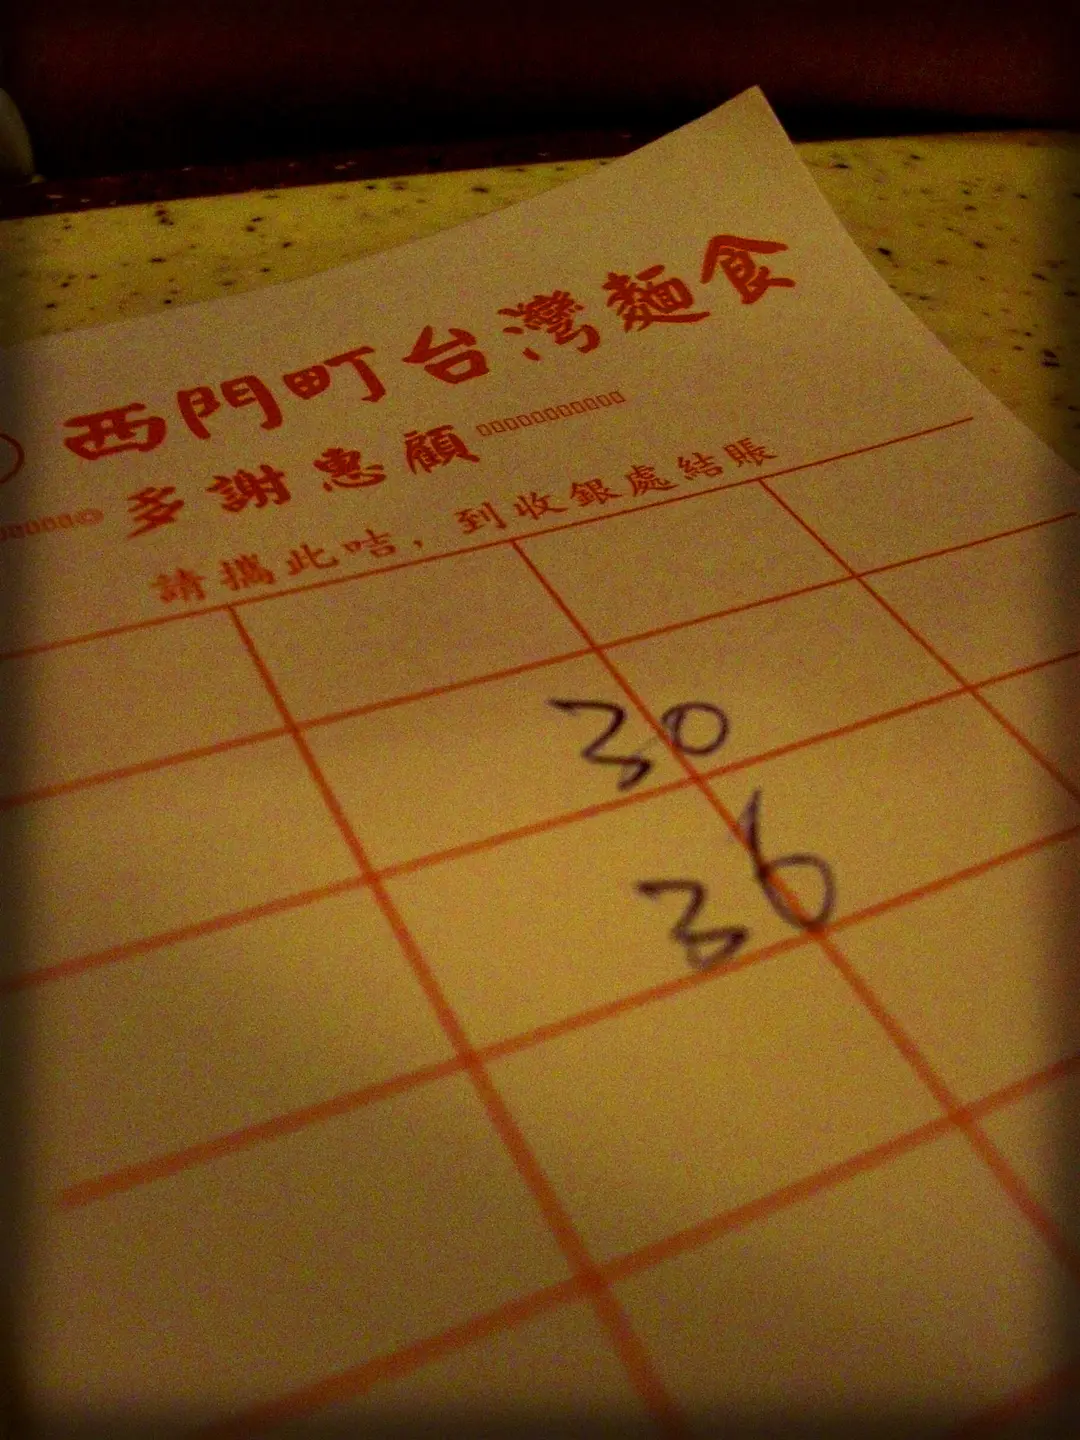 西門町台灣麵食
多謝惠顧
請攜此咭，到收銀處結賬
30
36